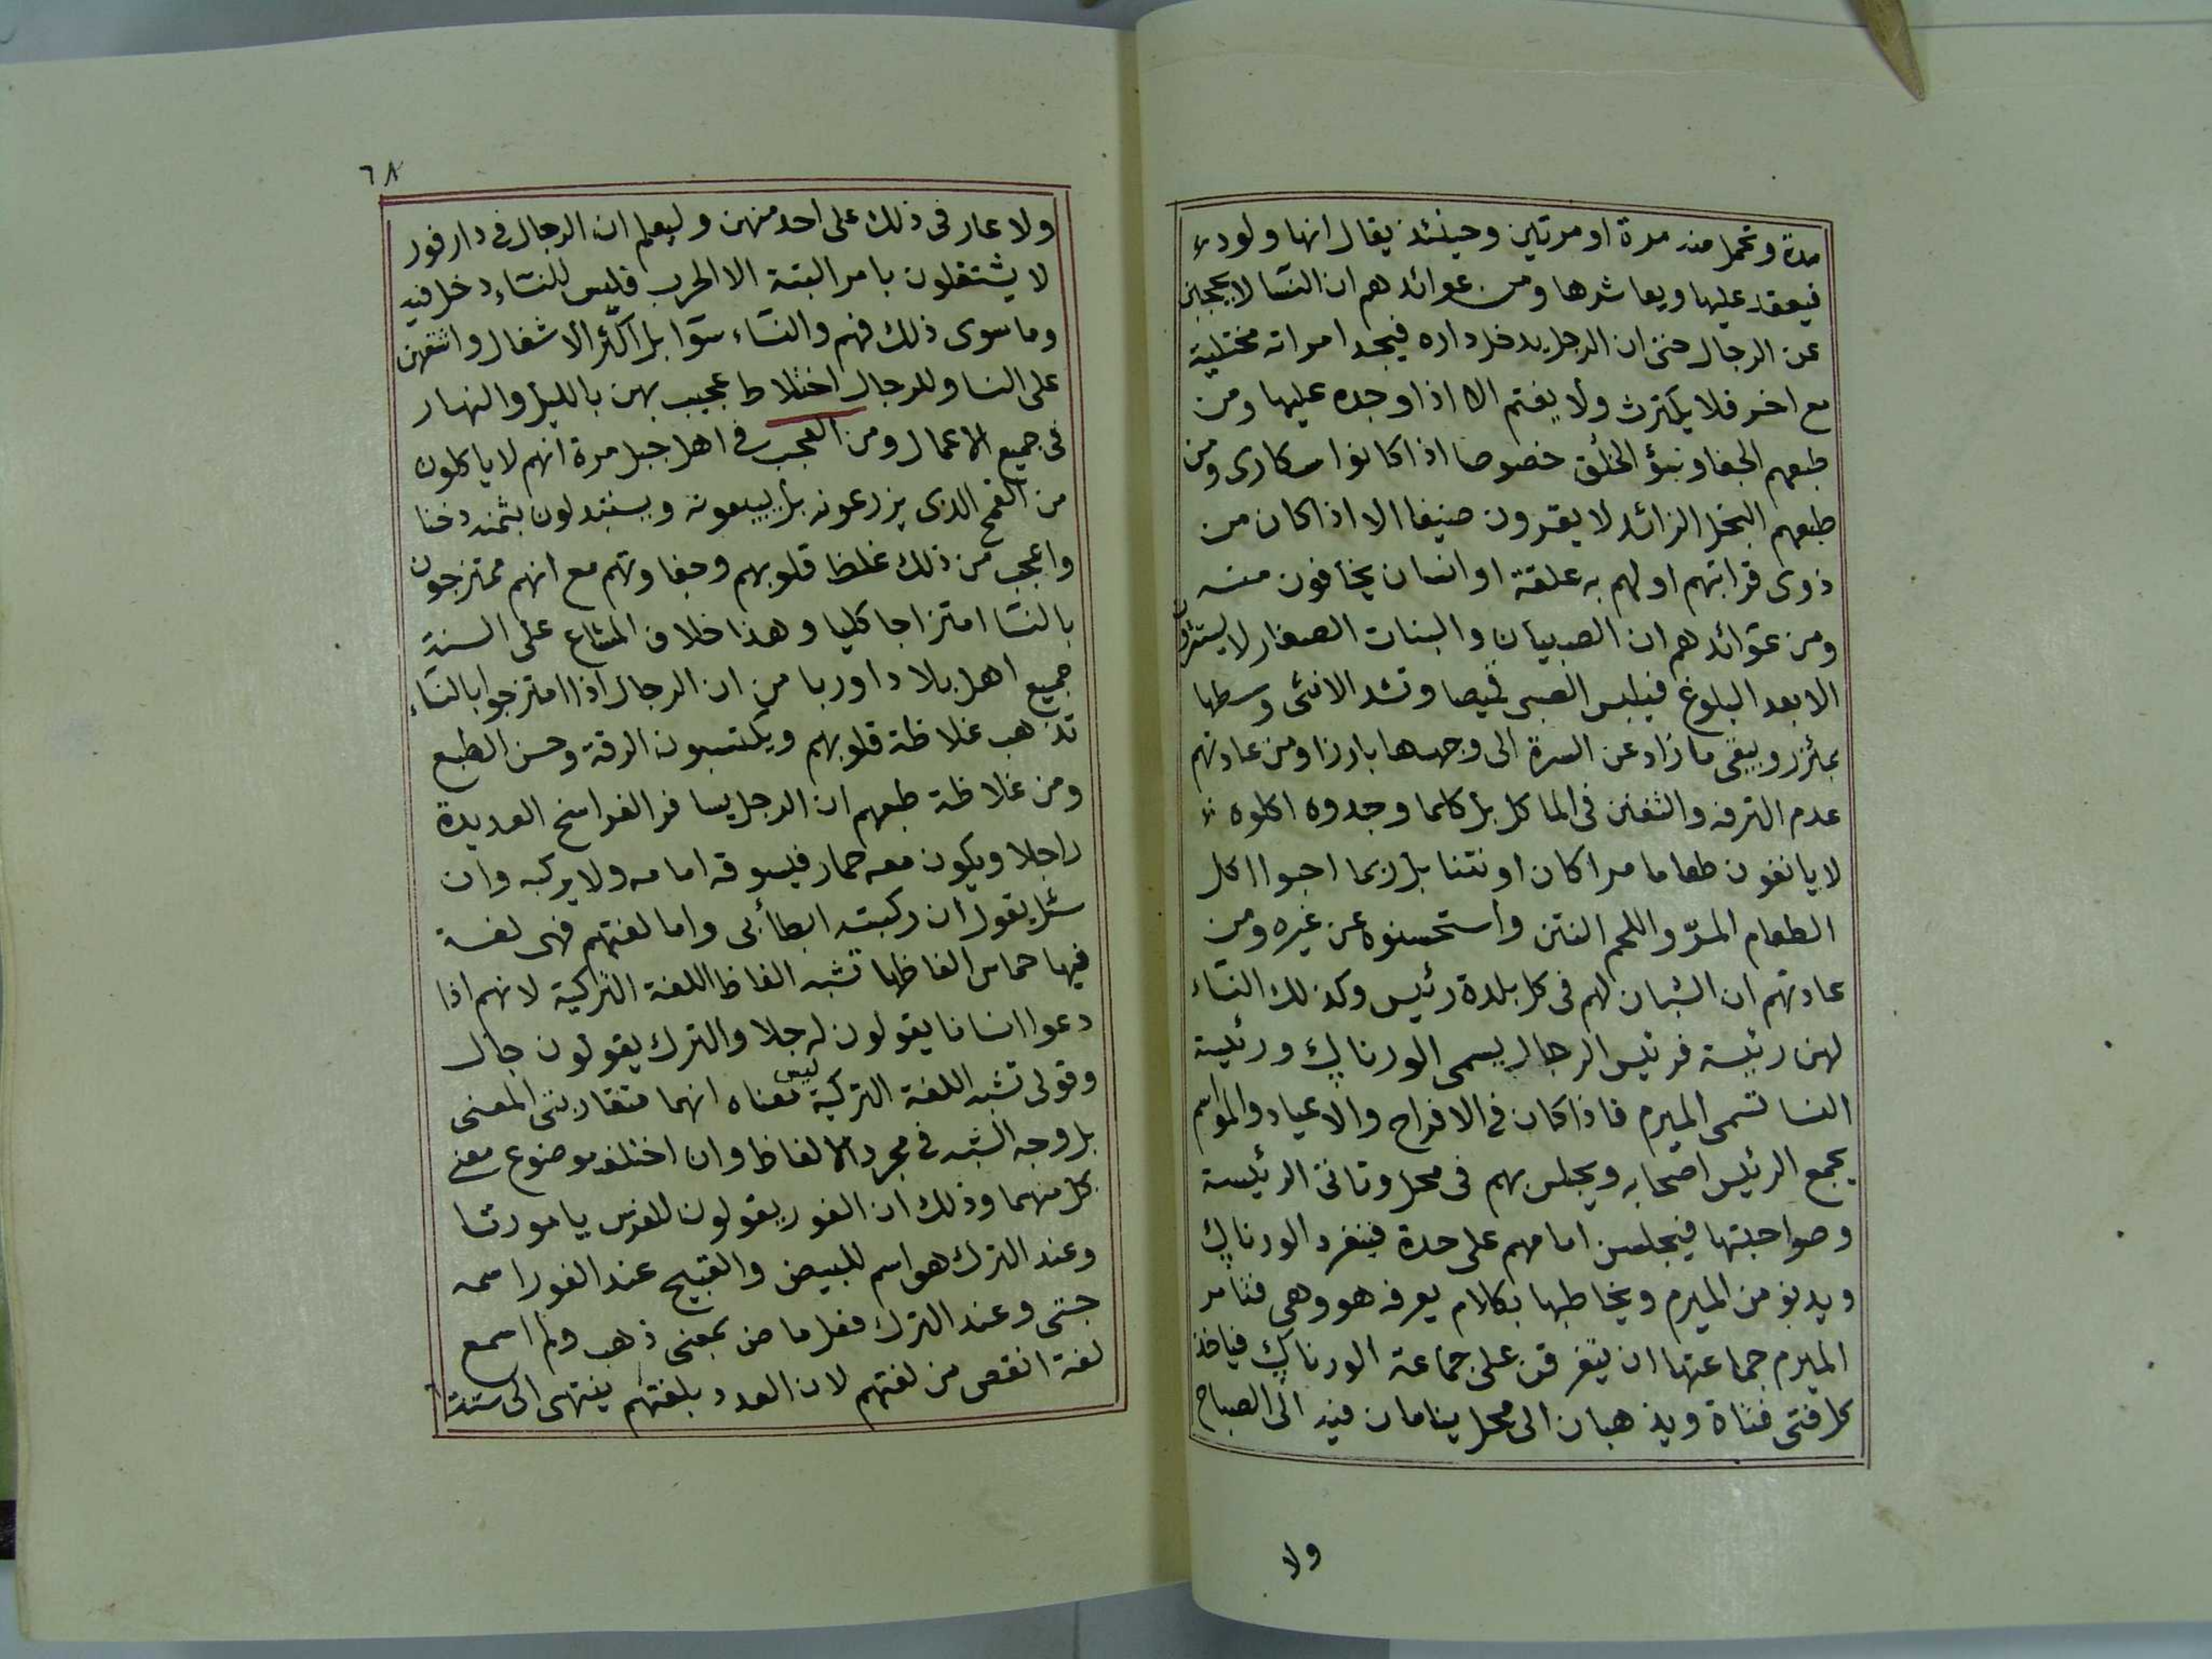 مدة وتحمل منه مرة او مرتين وحينئذ يقال انها ولود
فيعقد عليها ويعاشرها ومن عوائدهم ان النسا لا يحجبن
عن الرجال حتى ان الرجل يدخل داره فيجد امراته مختلية
مع اخر فلا يكترث ولا يغتم الا اذا وجده عليها ومن
طبعهم الجفا وسوء الخلق خصوصا اذا كانوا سكارى ومن
طبعهم البخل الزائد لا يقرون ضيفا الا اذا كان من
ذوى قرابتهم او لهم به علقة او انسان يخافون منه
ومن عوائدهم ان الصبيان والبنات الصغار لا يستترون
الا بعد البلوغ فيلبس الصبى قميصا وتشد الانثى وسطها
بمئزر ويبقى ما زاد عن السرة الى وجهها بارزا ومن عادتهم
عدم الترفه والتفنن فى الماكل بل كلما وجدوه اكلوه
لا يانفون طعاما مرا كان او نتنا بل ربما احبوا اكل
الطعام المرّ واللحم النتن واستحسنوه عن غيره ومن
عادتهم ان الشبان لهم فى كل بلدة رئيس وكذلك النساء
لهن رئيسة فرئيس الرجال يسمى الورناك ورئيسة
النسا تسمى الميرم فاذا كان فى الافراح والاعياد والمواسم
يجمع الرئيس اصحابه ويجلس بهم فى محل وتاتى الرئيسة
وصواحبتها فيجلسن امامهم على حدة فينفرد الورناك
ويدنو من الميرم ويخاطبها بكلام يعرفه هو وهى فتامر
الميرم جماعتها ان يتفرقن على جماعة الورناك فياخذ
كل فتى فتاة ويذهبان الى محل ينامان فيه الى الصباح
ولا
٦٨
ولا عار فى ذلك على احد منهن وليعلم ان الرجال فى دارفور
لا يشتغلون بامر البتة الا الحرب فليس للنساء دخل فيه
وما سوى ذلك فهم والنساء سوّا بل اكثر الاشغال واشقهن
على النسا وللرجال اختلاط عجيب بهن بالليل والنهار
فى جميع الاعمال ومن العجب فى اهل جبل مرة انهم لا ياكلون
من القمح الذى يزرعونه بل يبيعونه ويستبدلون بثمنه دخنا
واعجب من ذلك غلظ قلوبهم وجفاوتهم مع انهم ممتزجون
بالنسا امتزاجا كليا وهذا خلاف المشاع على السنة
جميع اهل بلاد اوربا من ان الرجال اذا امتزجوا بالنساء
تذهب غلاظة قلوبهم ويكتسبون الرقة وحسن الطبع
ومن غلاظة طبعهم ان الرجل يسافر الفراسخ العديدة
راجلا ويكون معه حمار فيسوقه امامه ولا يركبه وان
سئل يقول ان ركبته ابطأ بى واما لغتهم فهى لغة
فيها حماس الفاظها تشبه الفاظ اللغة التراكية لانهم اذا
دعوا انسانا يقولون له جلا والترك يقولون جال
وقولى تشبه اللغة التركية ليس معناه انهما متقاربتى المعنى
بل وجه الشبه فى مجرد الالفاظ وان اختلف موضوع معنى
كل منهما وذلك ان الفور يقولون للفرس يا مورتا
وعند الترك هو اسم للبيض والقبيح عند الفور اسمه
جتى وعند الترك فعل ماض بمعنى ذهب ولم اسمع
لغة انقص من لغتهم لان العدد بلغتهم ينتهى الى ستة